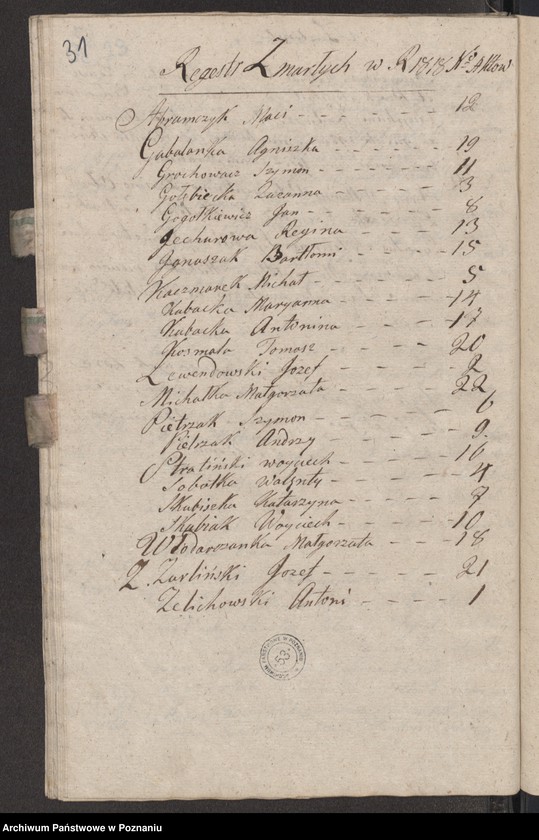 31
Regestr Zmarłych w R 1818 Nro Aktow
Abramczyk Maci - - - - - - 12
Gabalanka Agniszka - - - - - 19
Grochowacz Szymon - - - - - 11
Gołębiecka Zuzanna - - - - - 3
Gogołkiewicz Jan - - - - - 8
Jechurowa Regina - - - - 13
Januszak Bartłomi - - - - 15
Kaczmarek Michał - - - - - 5
Kubacka Maryanna - - - - 14
Kubacka Antonina - - - - 17
Kosmala Tomasz - - - - - 20
Lewendowski Jozef - - - - - 2
Michałka Małgorzata - - - - 22
Pietrzak Szymon - - - - - 6
Pietrzak Andrzy - - - - - 9.
Straliński woyciech - - - - - 16
Sobotka walęty - - - - - 4
Skubiszka Katarzyna - - - - 7
Skubiak Woyciech - - - - - 10
Włodarczanka Małgorzata - - - - 18
Z. Zarliński Jozef - - - - - 21
Zelichowski Antoni - - - - 1
ARCHIWUM PAŃSTWOWE W POZNANIU
53
Archiwum Państwowe w Poznaniu